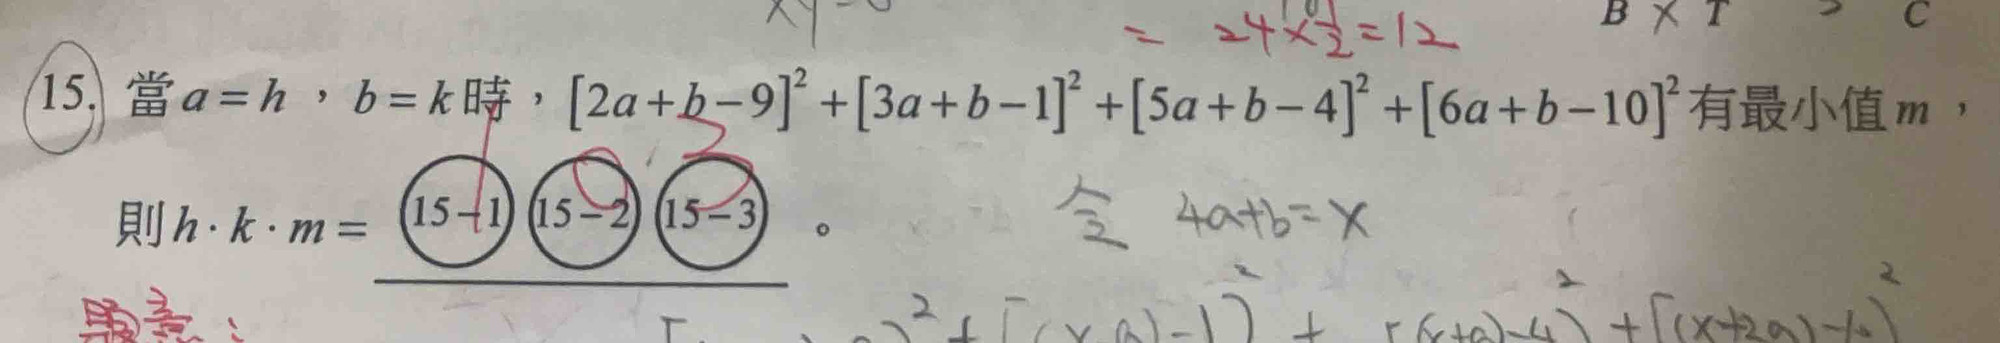 = 24×1/2=12
B × T C
15. 當 a = h ， b = k 時 ， [2a+b−9]² + [3a+b−1]² + [5a+b−4]² + [6a+b−10]² 有最小值 m ，
1 0 5
則 h · k · m = 15−1 15−2 15−3 。
令 4a+b=x
+ [(x-a)-1]² + [(x+a)-4]² + [(x+2a)-10]²